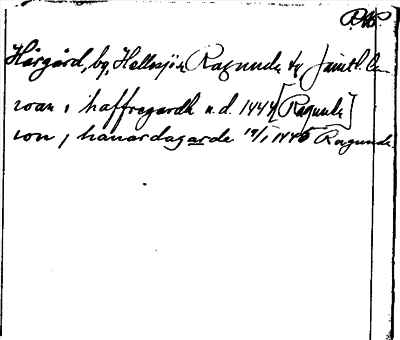 Hårgård, by, Hellsjö s Ragunda tg Jämtl. l.
roar i haffregardh u.d. 1444 [Ragunda]
ron i hanardagarde 19/1 1446 Ragunda